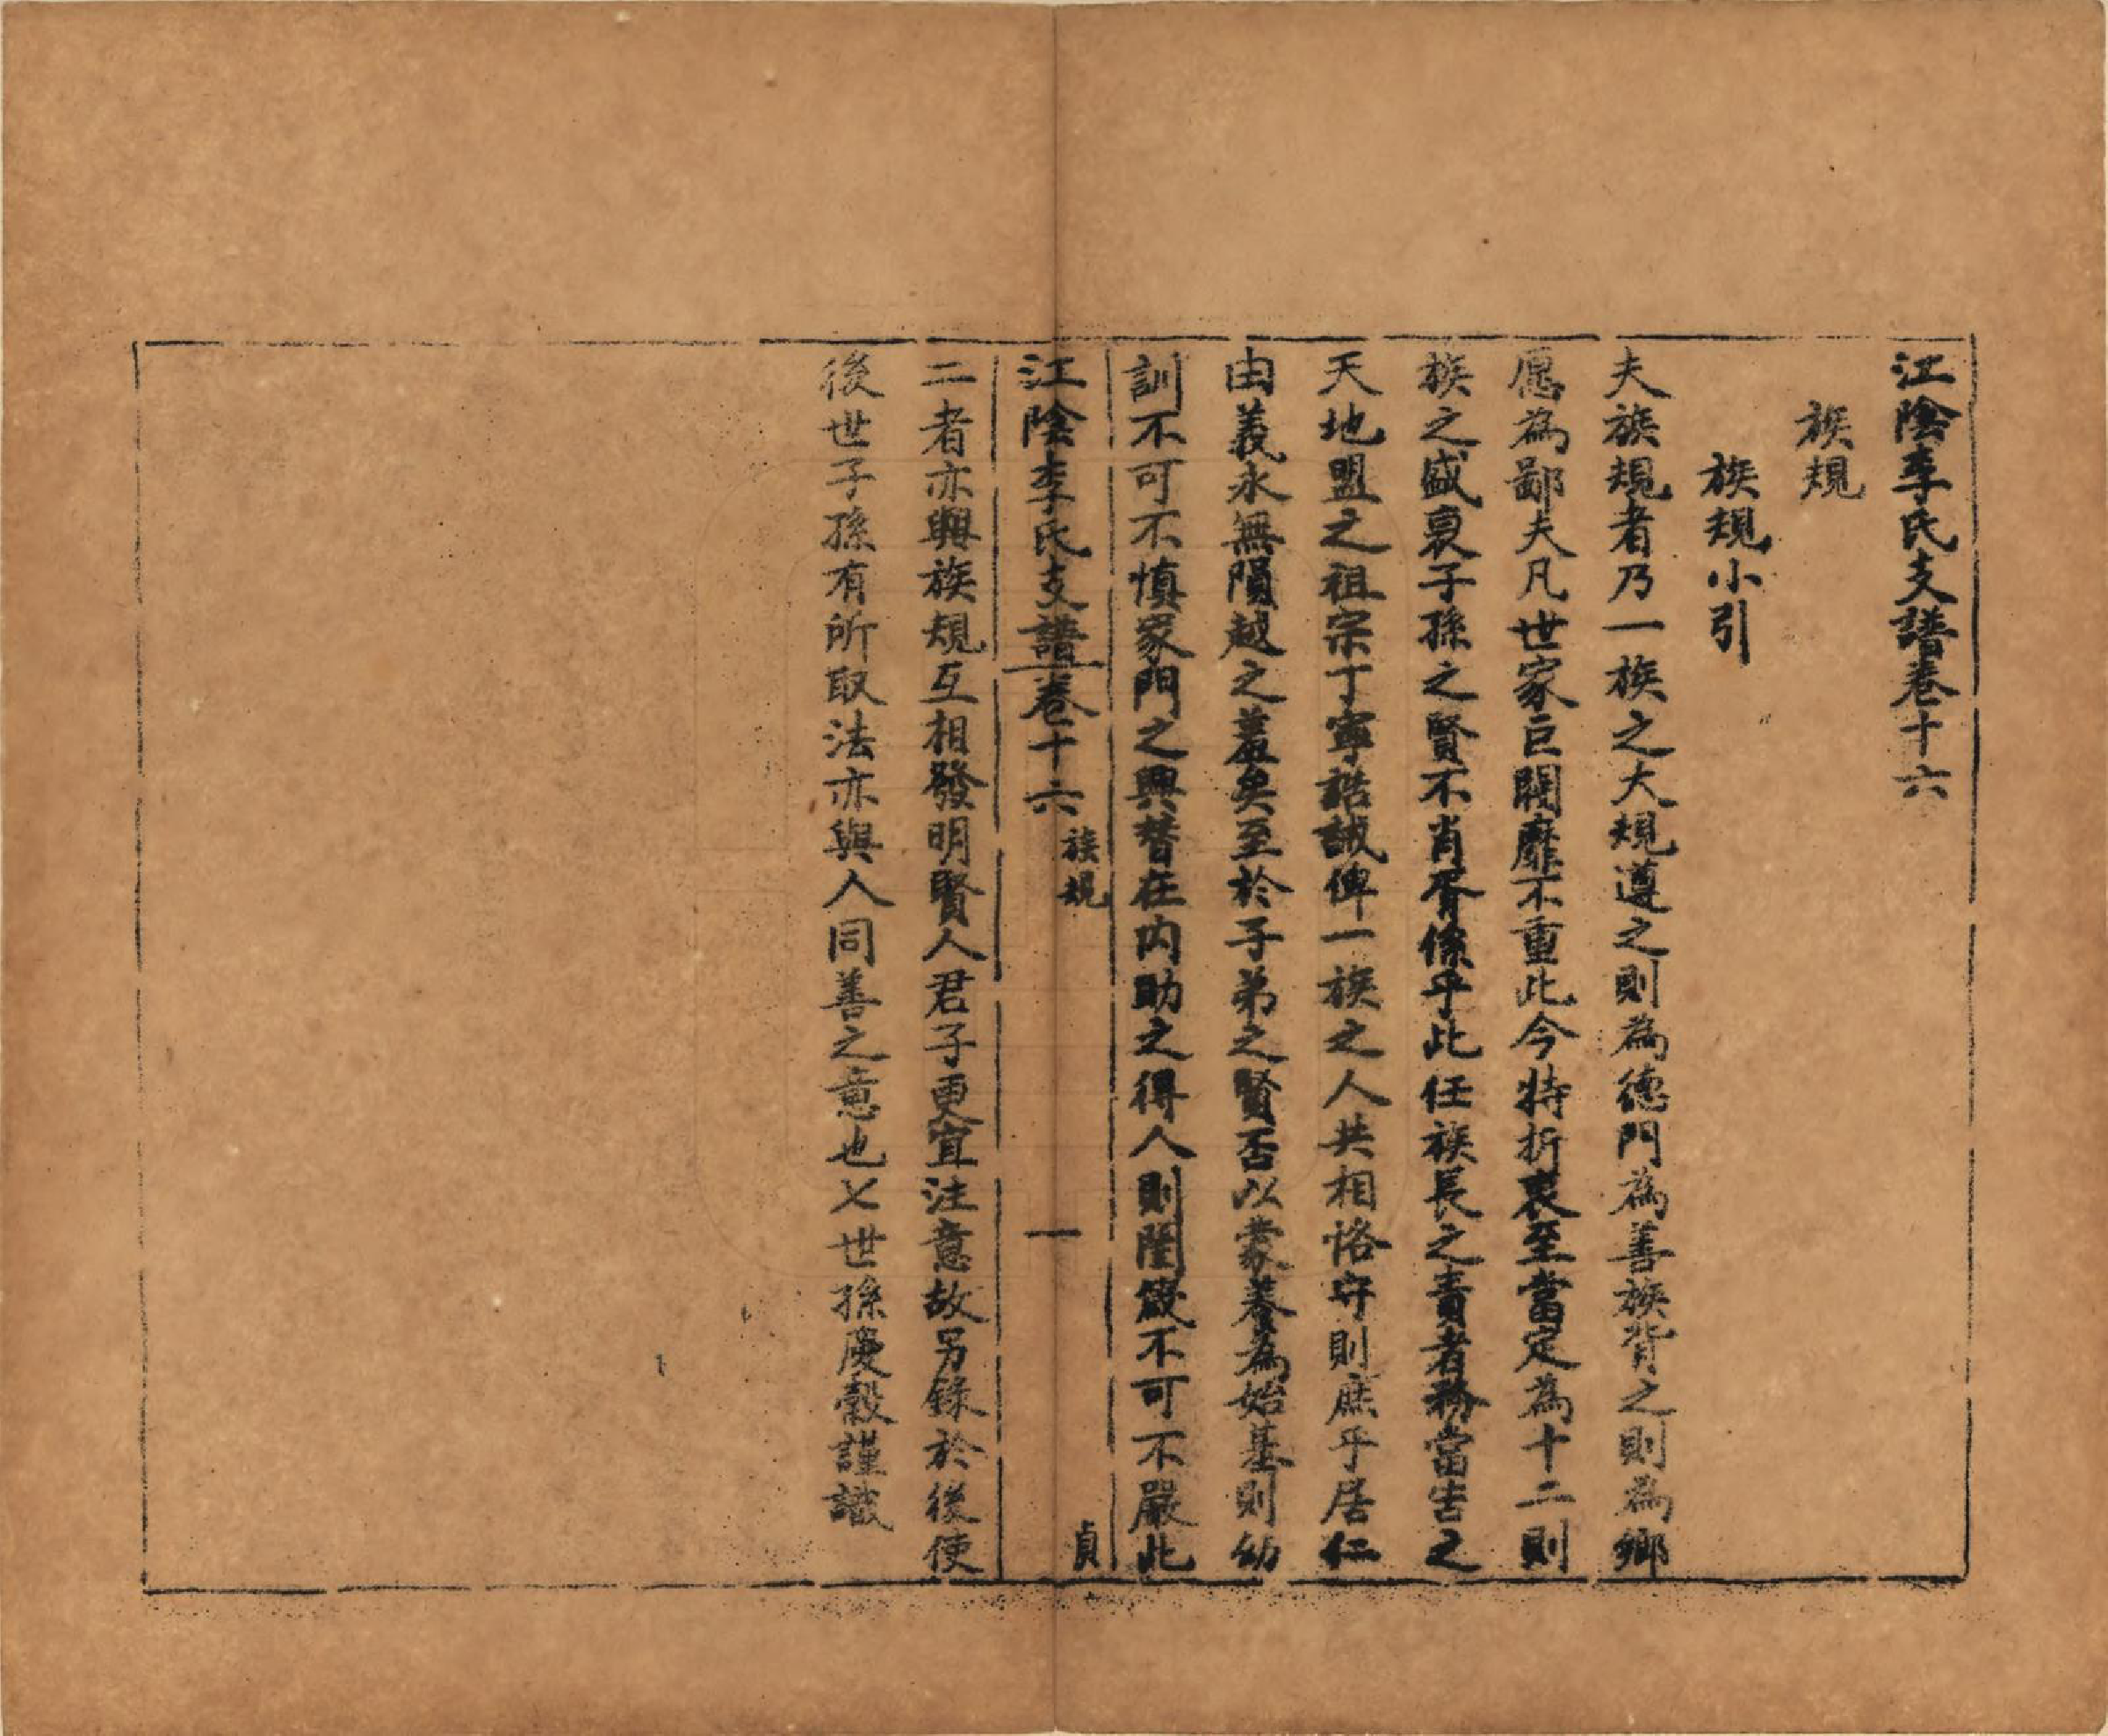 江陰李氏支譜卷十六
族規
族規小引
夫族規者乃一族之大規遵之則為德門為善族背之則為鄉
愿為鄙夫凡世家巨閥靡不重此今特折衷至當定為十二則
族之盛衰子孫之賢不肖胥係乎此任族長之責者務當告之
天地盟之祖宗丁寧誥誡俾一族之人共相恪守則庶乎居仁
由義永無隕越之羞矣至於子弟之賢否以蒙養為始基則幼
訓不可不慎家門之興替在内助之得人則閨箴不可不嚴此
江陰李氏支譜卷十六 族規 一 貞
二者亦與族規互相發明賢人君子更宜注意故另錄於後使
後世子孫有所取法亦與人同善之意也七世孫慶穀謹識